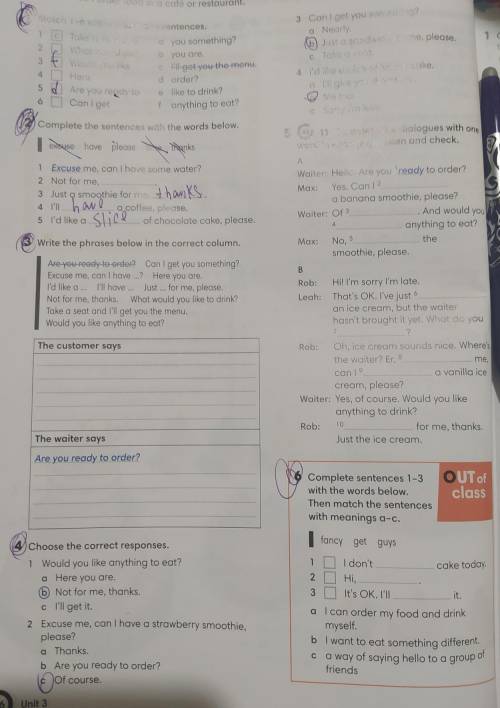 food in a café or restaurant.
sentences.
1 c
2
3 f
4
5 d Are you ready to
6 Can I get
a you something?
b you are.
c I'll get you the menu.
d order?
e like to drink?
f anything to eat?
2 Complete the sentences with the words below.
excuse have please thanks
1 Excuse me, can I have some water?
2 Not for me,
3 Just a smoothie for me, thanks.
4 I'll have a coffee, please.
5 I'd like a slice of chocolate cake, please.
3 Write the phrases below in the correct column.
Are you ready to order? Can I get you something?
Excuse me, can I have ...? Here you are.
I'd like a ... I'll have ... Just ... for me, please.
Not for me, thanks. What would you like to drink?
Take a seat and I'll get you the menu.
Would you like anything to eat?
The customer says
The waiter says
Are you ready to order?
4 Choose the correct responses.
1 Would you like anything to eat?
a Here you are.
b Not for me, thanks.
c I'll get it.
2 Excuse me, can I have a strawberry smoothie,
please?
a Thanks.
b Are you ready to order?
c Of course.
Unit 3
3 Can I get you
a Nearly.
b Just a me, please.
c
4 I'd like
a
b
c
5 11 dialogues with one
and check.
A
Waiter: Hello. Are you ¹ready to order?
Max: Yes. Can I ²
a banana smoothie, please?
Waiter: Of ³ . And would you
⁴ anything to eat?
Max: No, ⁵ the
smoothie, please.
B
Rob: Hi! I'm sorry I'm late.
Leah: That's OK. I've just ⁶
an ice cream, but the waiter
hasn't brought it yet. What do you
⁷ ?
Rob: Oh, ice cream sounds nice. Where's
the waiter? Er, ⁸ me,
can I ⁹ a vanilla ice
cream, please?
Waiter: Yes, of course. Would you like
anything to drink?
Rob: ¹⁰ for me, thanks.
Just the ice cream.
6 Complete sentences 1–3
with the words below.
Then match the sentences
with meanings a–c.
OUT of
class
fancy get guys
1 I don't cake today.
2 Hi, .
3 It's OK, I'll it.
a I can order my food and drink
myself.
b I want to eat something different.
c a way of saying hello to a group of
friends